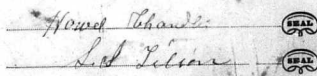 Howd Chandler SEAL
S.S. Tilson SEAL